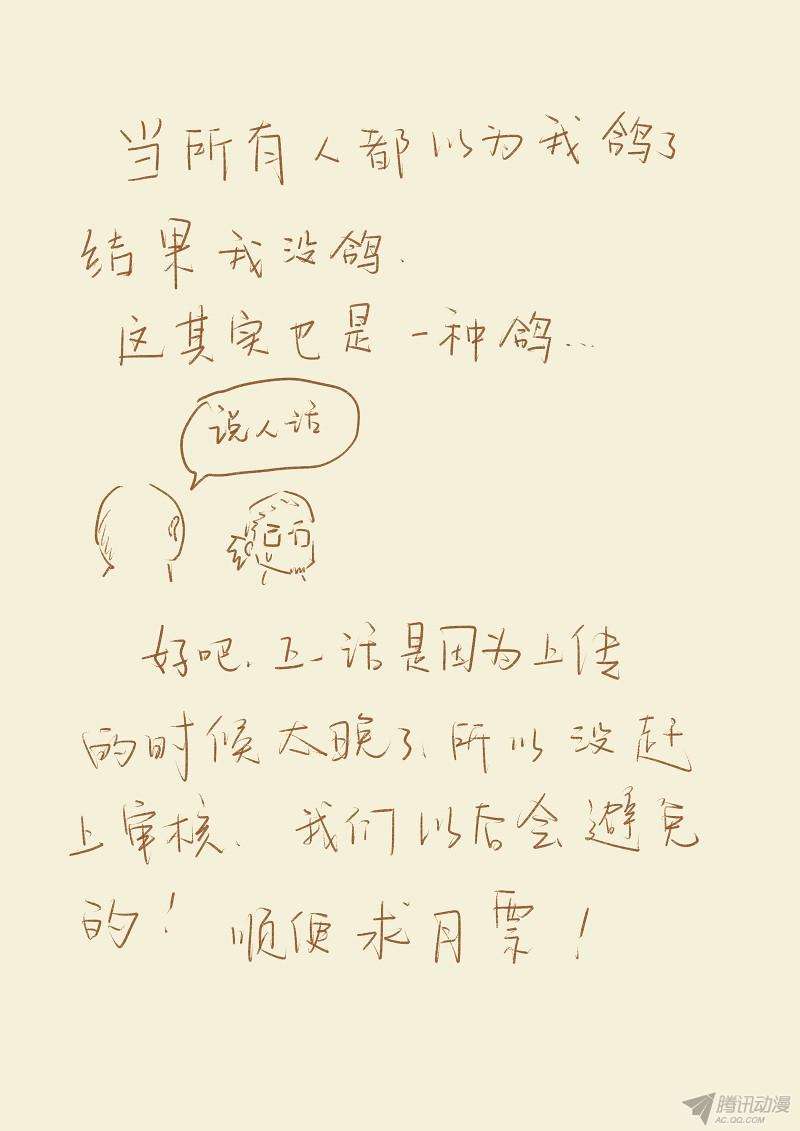 当所有人都以为我鸽了
结果我没鸽.
这其实也是一种鸽...
说人话
好吧、五一话是因为上传
的时候太晚了、所以没赶
上审核、我们以后会避免
的！顺便求月票！
腾讯动漫
AC.QQ.COM